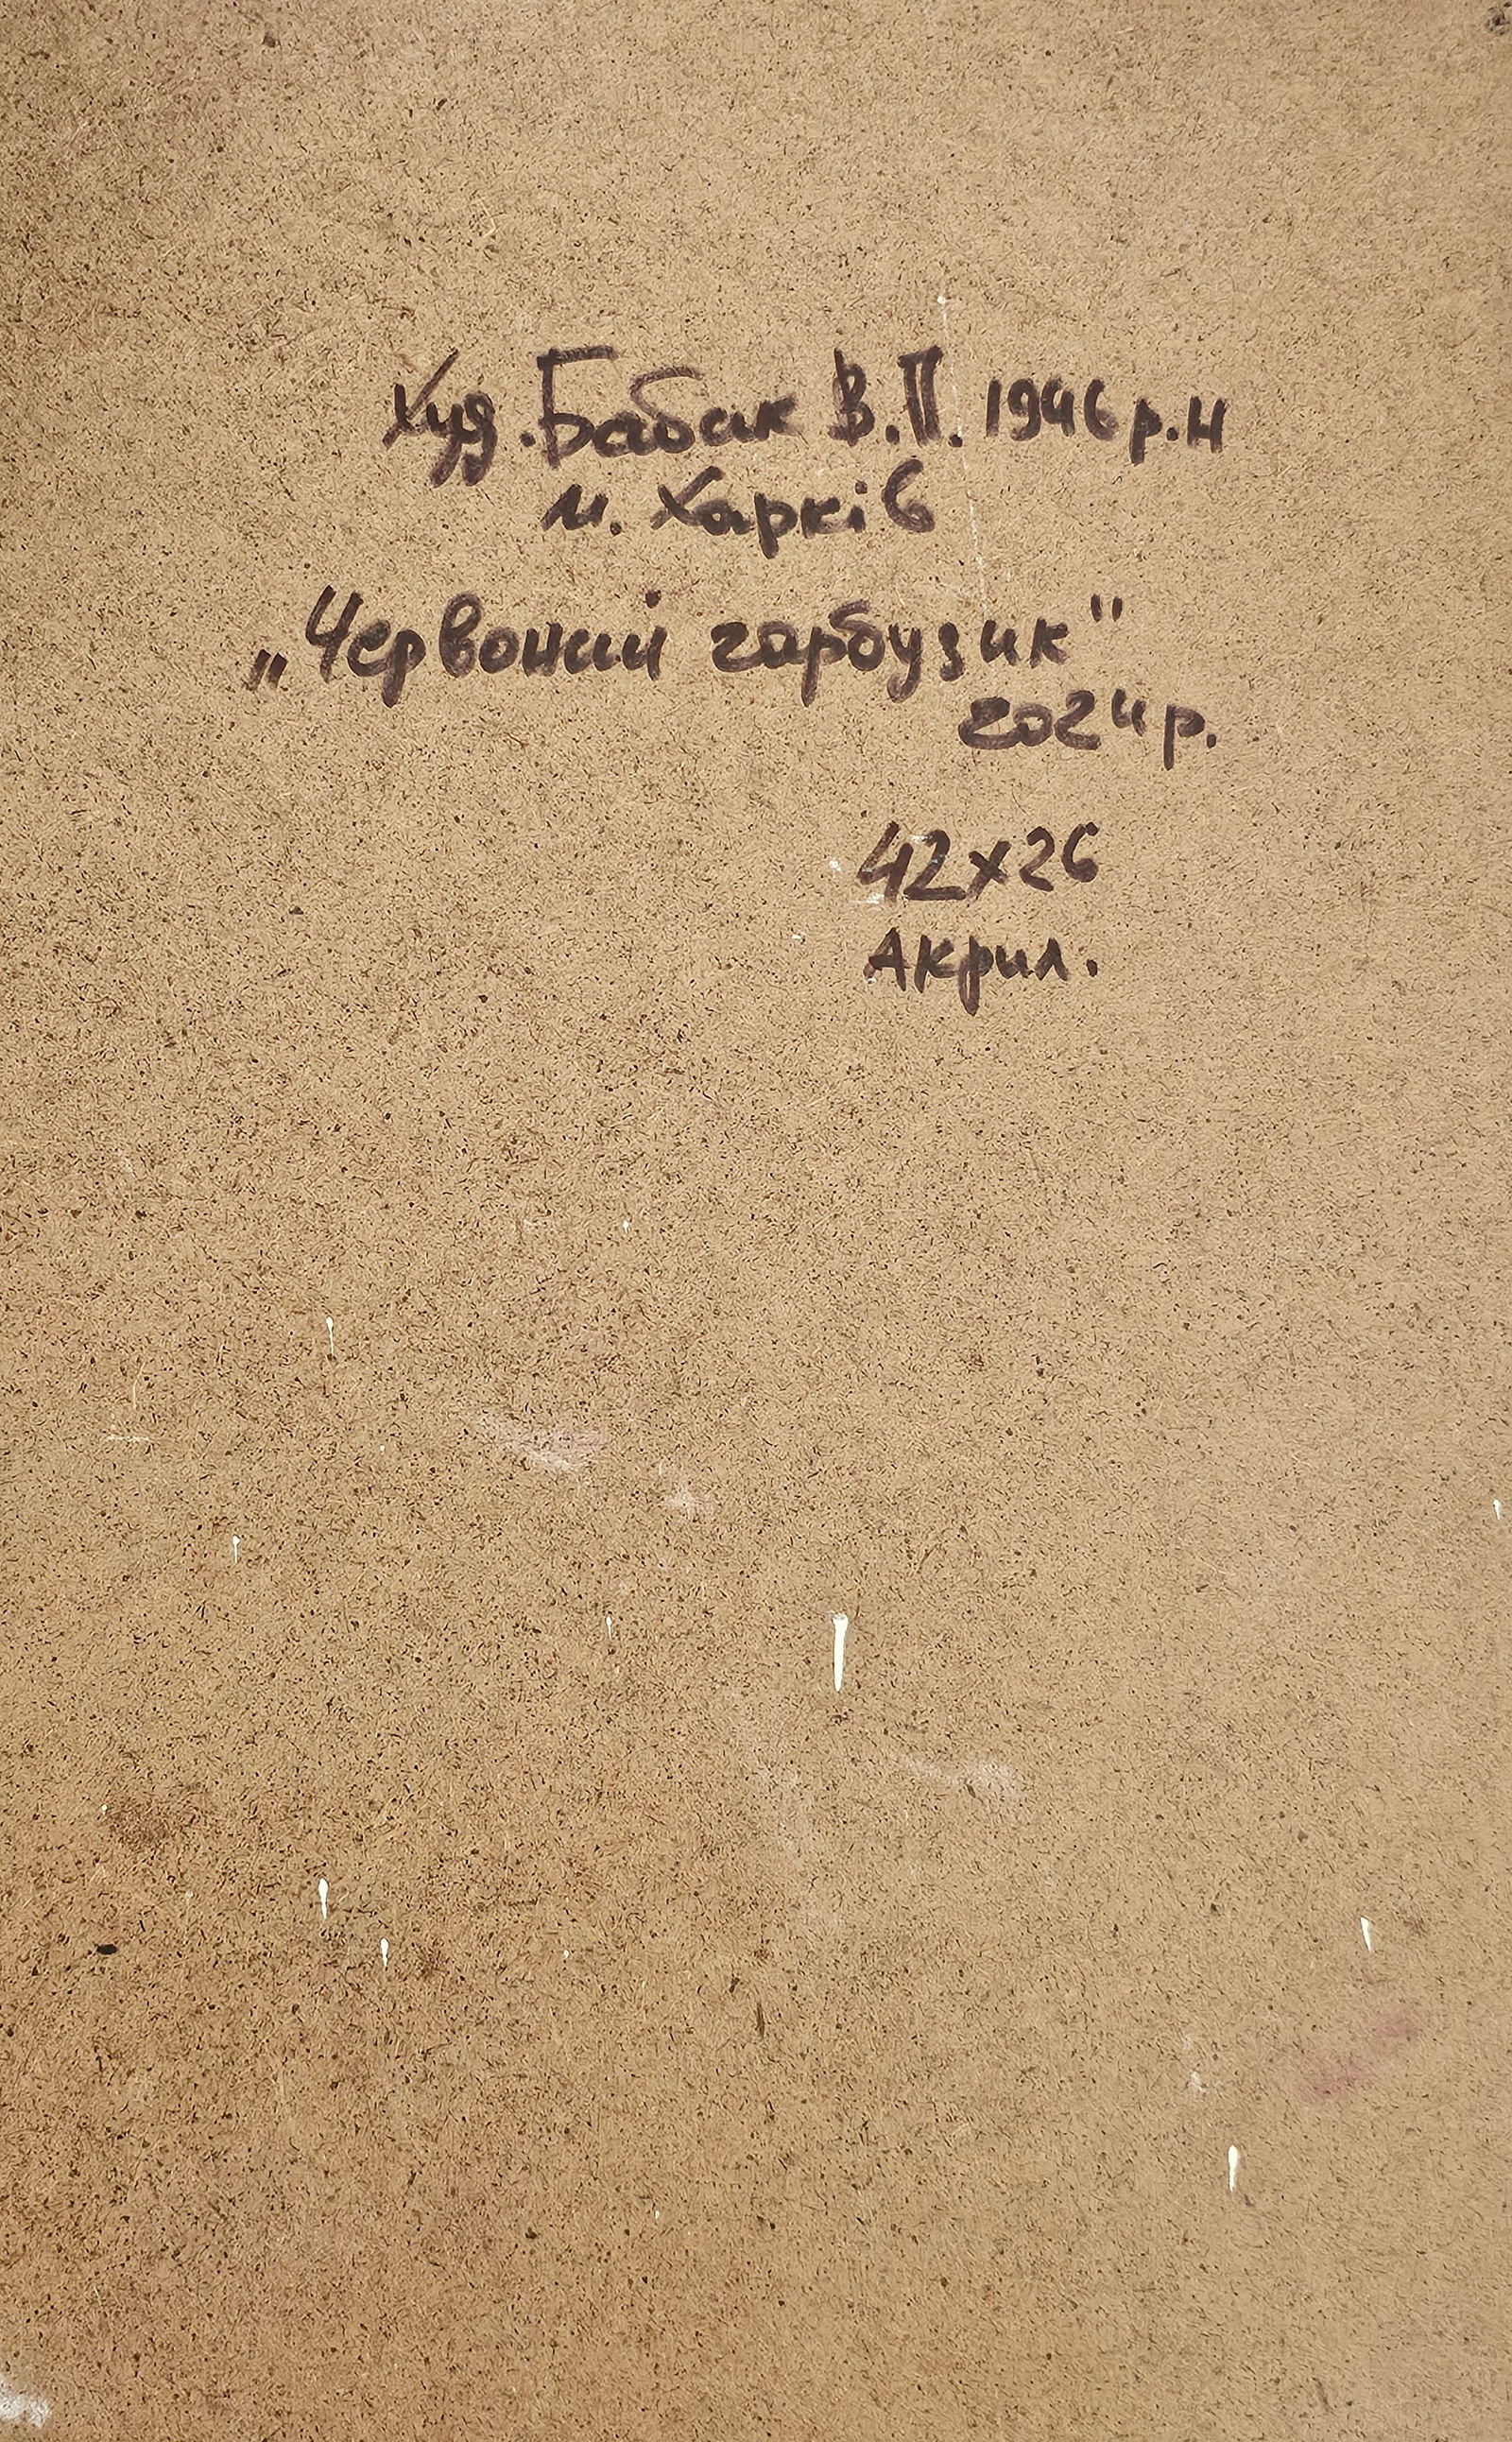 Худ. Бабак В.П. 1946 р.н
м. Харків
„Червоний гарбузик"
2024 р.
42х26
Акрил.